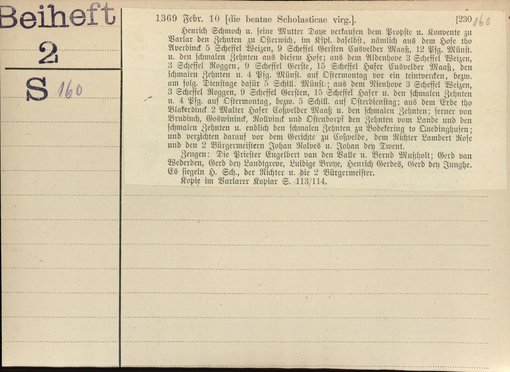 Beiheft
2
S 160
1369 Febr. 10 [die beatae Scholasticae virg.]. [230] 160
Henrich Schmoch u. seine Mutter Daye verkaufen dem Propste u. Konvente zu
Varlar den Zehnten zu Osterwich, im Kspl. daselbst, nämlich aus dem Hofe tho
Averdinck 5 Scheffel Weizen, 9 Scheffel Gersten Cusvelder Maaß, 12 Pfg. Münst.
u. den schmalen Zehnten aus diesem Hofe; aus dem Aldenhove 3 Scheffel Weizen,
3 Scheffel Roggen, 9 Scheffel Gerste, 15 Scheffel Hafer Cusvelder Maaß, den
schmalen Zehnten u. 4 Pfg. Münst. auf Ostermontag vor ein teintvercken, bezw.
am folg. Dienstage dafür 5 Schill. Münst.; aus dem Nienhove 3 Scheffel Weizen,
3 Scheffel Roggen, 9 Scheffel Gersten, 15 Scheffel Hafer u. den schmalen Zehnten
u. 4 Pfg. auf Ostermontag, bezw. 5 Schill. auf Osterdienstag; aus dem Erbe tho
Blakerdinck 2 Malter Hafer Coßvelder Maaß u. den schmalen Zehnten; ferner von
Brudinch, Goswininck, Rolvind und Ostendorf den Zehnten vom Lande und den
schmalen Zehnten u. endlich den schmalen Zehnten zu Bodekering to Luedinghusen;
und verzichten darauf vor dem Gerichte zu Coßvelde, dem Richter Lambert Rose
und den 2 Bürgermeistern Johan Rolves u. Johan dey Twent.
Zeugen: Die Priester Engelbert van den Balle u. Bernd Mußholt; Gerd van
Wederden, Gerd dey Landgreve, Luidige Broye, Henrich Gerdes, Gerd dey Junghe.
Es siegeln H. Sch., der Richter u. die 2 Bürgermeister.
Kopie im Varlarer Kopiar S. 113/114.